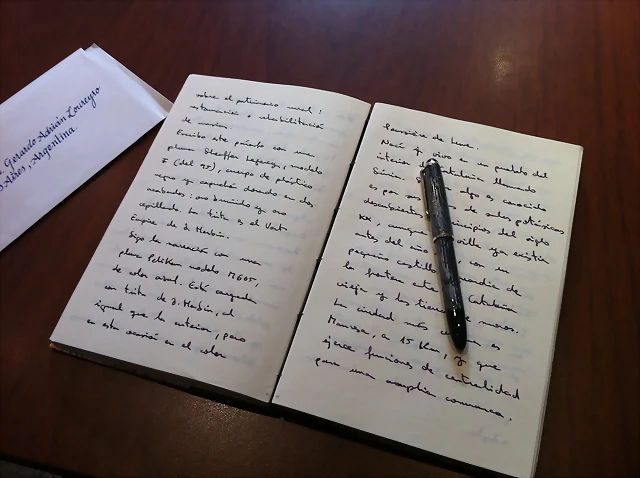 Gerardo Adrián Loureyro
s Aires, Argentina.
sobre el patrimonio rural:
restauración o rehabilitación
de masías.
Escribo este párrafo con una
pluma Sheaffer Legacy, modelo
F (del 95), cuerpo de plástico
negro y capuchón dorado en dos
acabados: oro bruñido y oro
cepillado. La tinta es el Vert
Empire de J. Herbin.
Sigo la narración con una
pluma Pelikan modelo M605,
de color azul. Está cargada
con tinta de J. Herbin, al
igual que la anterior, pero
en esta ocasión en el color
Poussière de Lune.
Nací y vivo en un pueblo del
interior de Cataluña llamado
Súria. algo es conocido
es por sus de sales potásicas
descubiertas principios del siglo
XX, aunque villa ya existía
antes del año con un
pequeño castillo indic de
la frontera entre Cataluña
vieja y las tierras de moros.
La ciudad más es
Manresa, a 15 Km, y que
ejerce funciones de centralidad
para una amplia comarca.